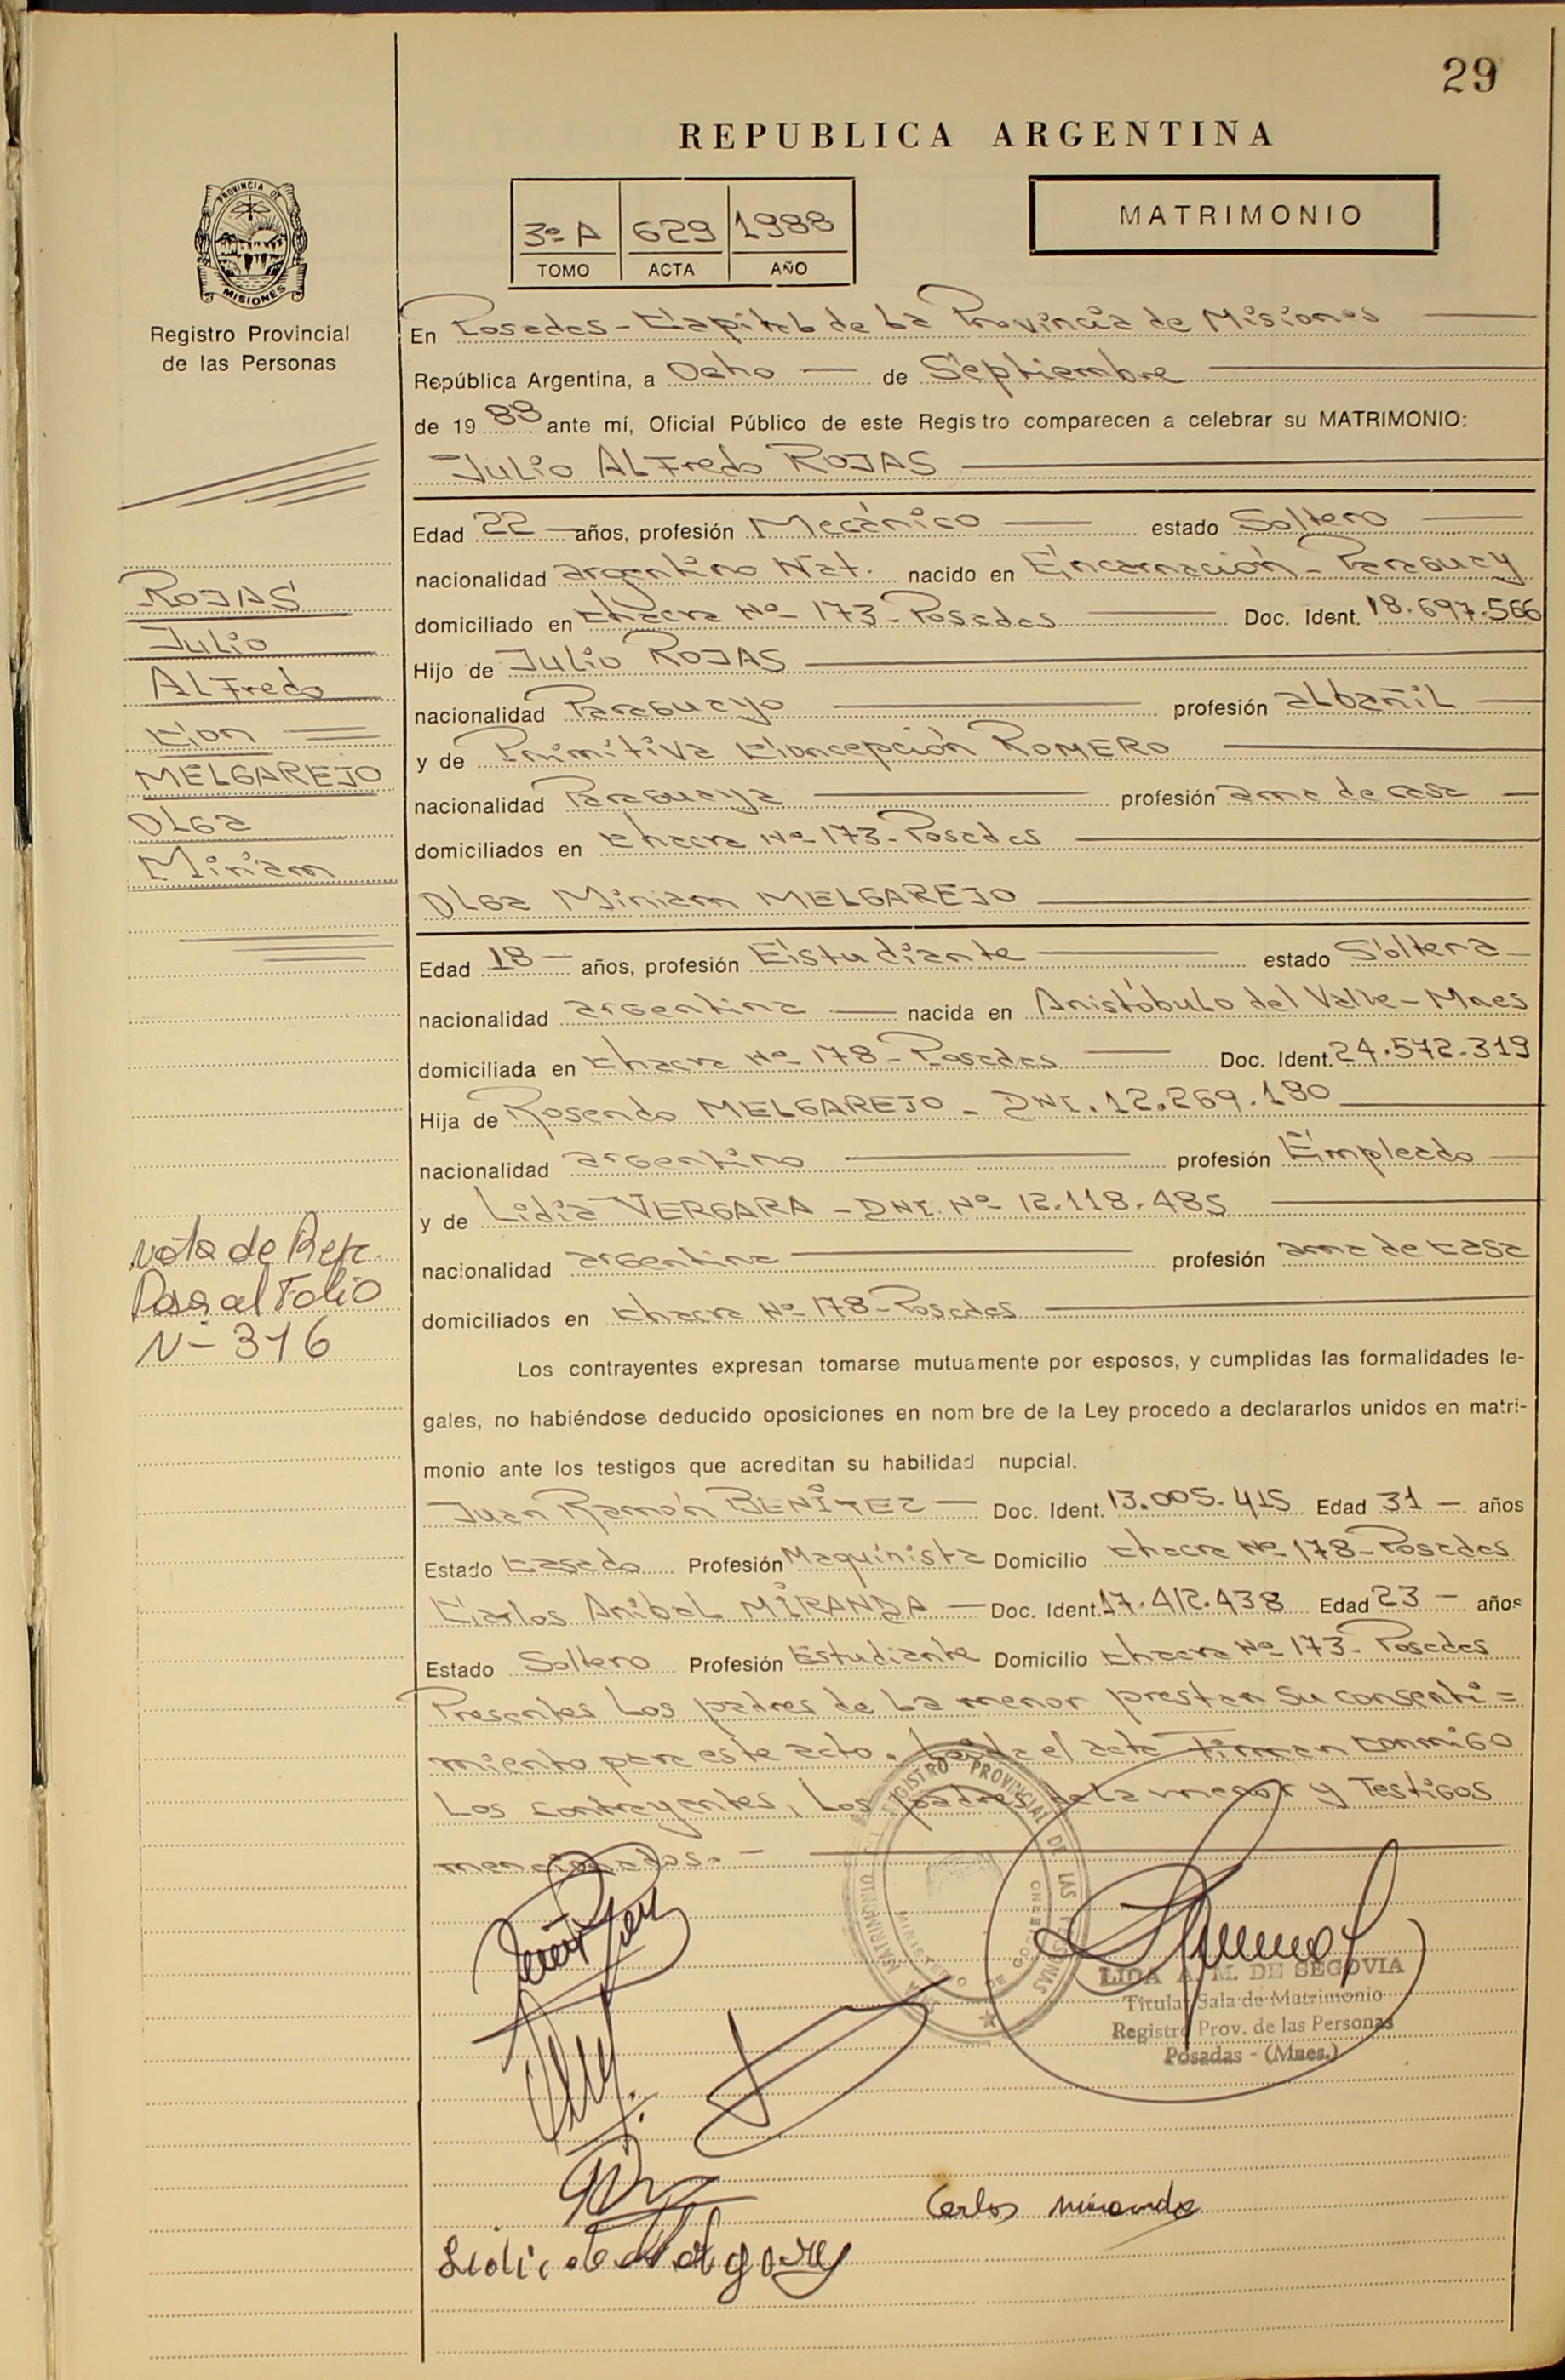 29
REPUBLICA ARGENTINA
PROVINCIA DE
MISIONES
Registro Provincial
de las Personas
3º A 629 1988
TOMO ACTA AÑO
MATRIMONIO
En Posadas - Capital de La Provincia de Misiones
República Argentina, a Ocho de Septiembre
de 19 88 ante mí, Oficial Público de este Registro comparecen a celebrar su MATRIMONIO:
Julio ALFredo ROJAS
Edad 22 años, profesión Mecánico estado Soltero
nacionalidad argentino Nat. nacido en Encarnación - Paraguay
domiciliado en Chacra Nº 173 - Posadas Doc. Ident. 18.697.566
Hijo de Julio ROJAS
nacionalidad Paraguayo profesión aLbañiL
y de Primitiva Concepción ROMERO
nacionalidad Paraguaya profesión ama de casa
domiciliados en Chacra Nº 173 - Posadas
OLga Miriam MELGAREJO
Edad 18 años, profesión Estudiante estado Soltera
nacionalidad argentina nacida en Aristóbulo del Valle - Mnes
domiciliada en Chacra Nº 178 - Posadas Doc. Ident. 24.572.319
Hija de Rosendo MELGAREJO - DNI. 12.269.180
nacionalidad argentino profesión Empleado
y de Lidia VERGARA - DNI. Nº 12.118.485
nacionalidad argentina profesión ama de casa
domiciliados en Chacra Nº 178 - Posadas
Los contrayentes expresan tomarse mutuamente por esposos, y cumplidas las formalidades le-
gales, no habiéndose deducido oposiciones en nom bre de la Ley procedo a declararlos unidos en matri-
monio ante los testigos que acreditan su habilidad nupcial.
Juan Ramón BENÍTEZ Doc. Ident. 13.005.415 Edad 31 años
Estado Casado Profesión Maquinista Domicilio Chacra Nº 178 - Posadas
Carlos Anibal MIRANDA Doc. Ident. 17.412.438 Edad 23 años
Estado Soltero Profesión Estudiante Domicilio Chacra Nº 173 - Posadas
Presentes Los padres de La menor prestan su consenti=
miento para este acto. Leída el acta Firman conmigo
Los contrayentes, Los padres de La menor y Testigos
mencionados.-
ROJAS
Julio
ALFredo
Con
MELGAREJO
OLga
Miriam
Nota de Ref.
Pasa al Folio
Nº 316
REGISTRO PROVINCIAL DE LAS PERSONAS
MINISTERIO DE GOBIERNO
MATRIMONIO
LIDA A. M. DE SEGOVIA
Titular Sala de Matrimonio
Registro Prov. de las Personas
Posadas - (Mnes.)
Carlos Miranda